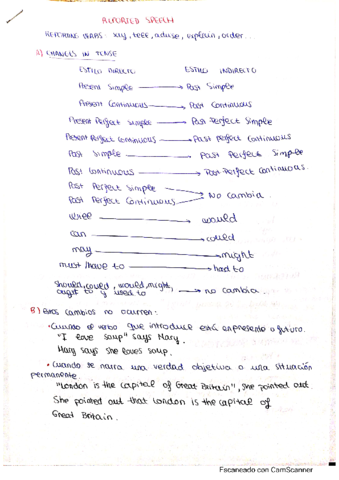 REPORTED SPEECH
REPORTING VERBS: say, tell, advise, explain, order...
A) CHANGES IN TENSE
ESTILO DIRECTO ESTILO INDIRECTO
Present Simple → Past Simple
Present Continuous → Past Continuous
Present Perfect Simple → Past Perfect Simple
Present Perfect Continuous → Past perfect Continuous
Past Simple → Past Perfect Simple
Past Continuous → Past Perfect Continuous
Past Perfect Simple
Past Perfect Continuous → No cambia
will → would
can → could
may → might
must/have to → had to
should, could, would, might,
ought to y used to → no cambia
B) Estos cambios no ocurren:
• Cuando el verbo que introduce está en presente o futuro.
"I love soup" says Mary.
Mary says she loves soup.
• Cuando se narra una verdad objetiva o una situación
permanente.
"London is the capital of Great Britain", she pointed out.
She pointed out that London is the capital of
Great Britain.
Escaneado con CamScanner